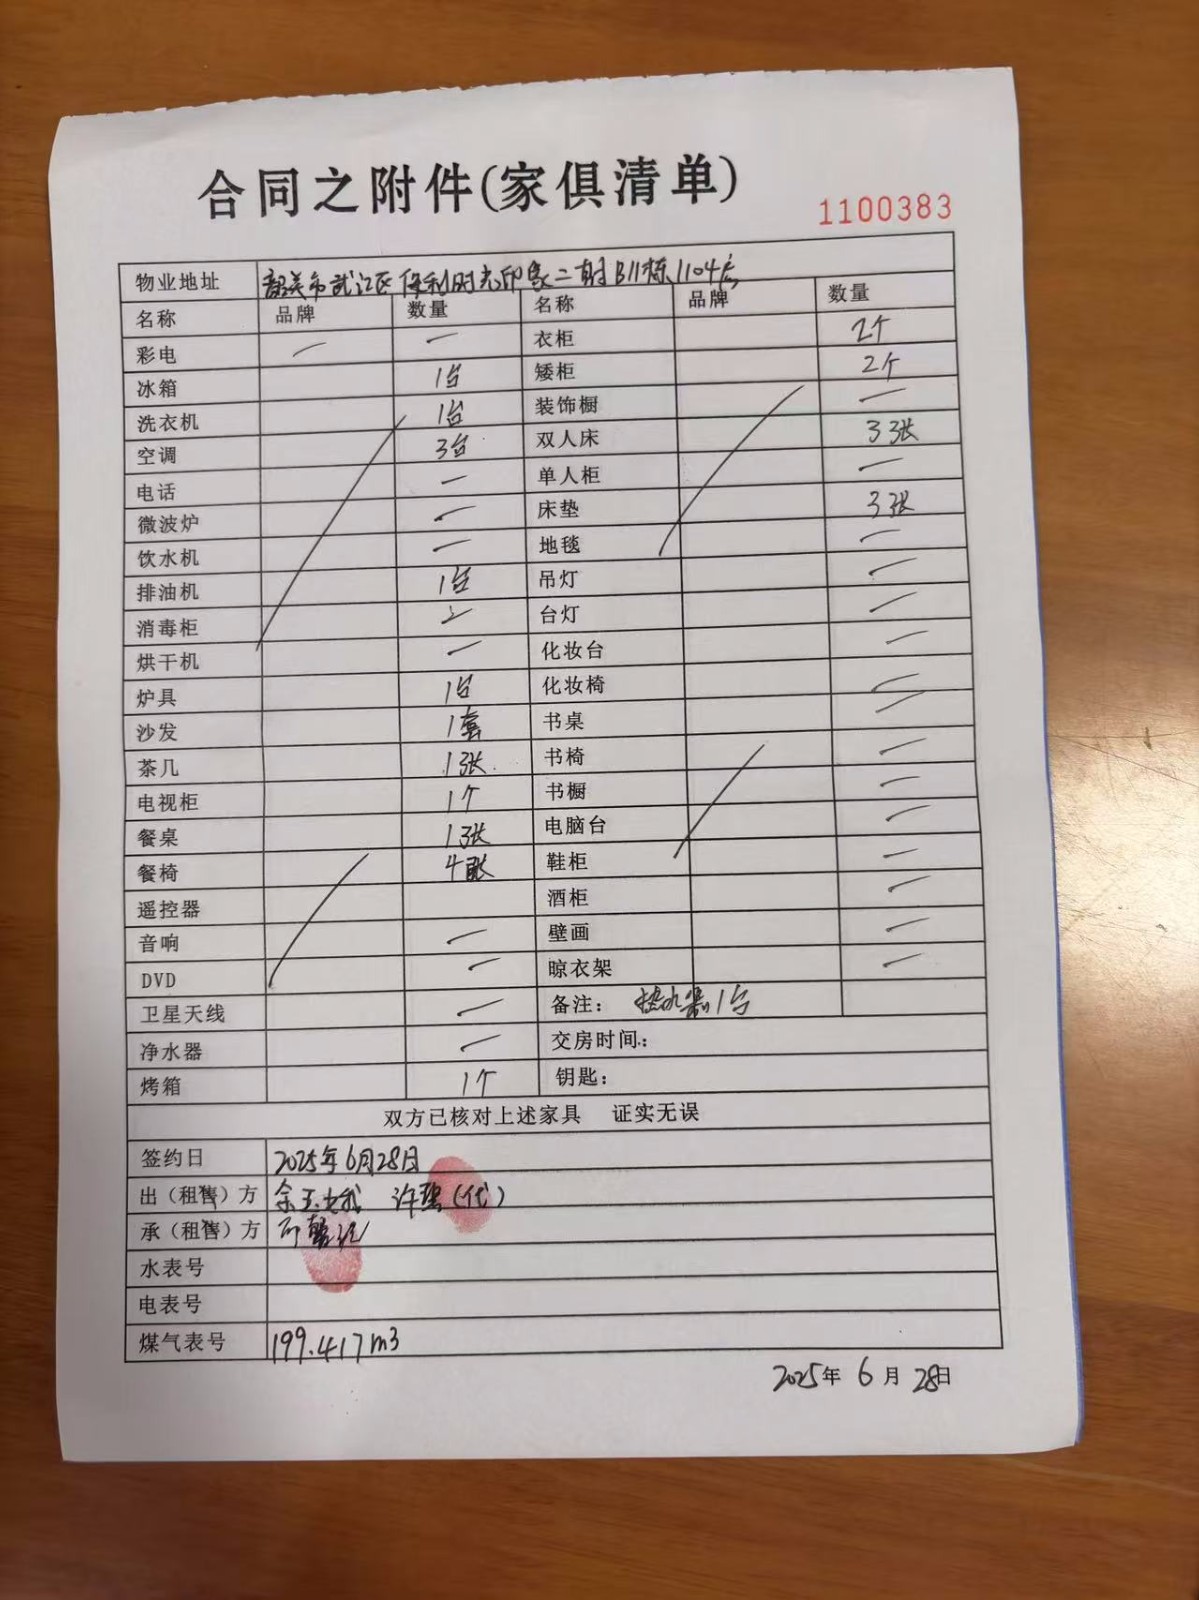 合同之附件(家俱清单)
1100383
物业地址 韶关市武江区保利时光印象二期B11栋1104房
名称 品牌 数量 名称 品牌 数量
彩电 — — 衣柜 2个
冰箱 1台 矮柜 2个
洗衣机 1台 装饰橱 —
空调 3台 双人床 3张
电话 — 单人柜 —
微波炉 — 床垫 3张
饮水机 — 地毯 —
排油机 1台 吊灯 —
消毒柜 台灯 —
烘干机 — 化妆台 —
炉具 1台 化妆椅 —
沙发 1套 书桌 —
茶几 1张 书椅 —
电视柜 1个 书橱 —
餐桌 1张 电脑台 —
餐椅 4张 鞋柜 —
遥控器 酒柜 —
音响 — 壁画 —
DVD — 晾衣架 —
卫星天线 — 备注: 热水器1台
净水器 — 交房时间:
烤箱 1个 钥匙:
双方已核对上述家具 证实无误
签约日 2025年6月28日
出(租售)方 余玉 许 (代)
承(租售)方
水表号
电表号
煤气表号 199.417m3
2025年6月28日